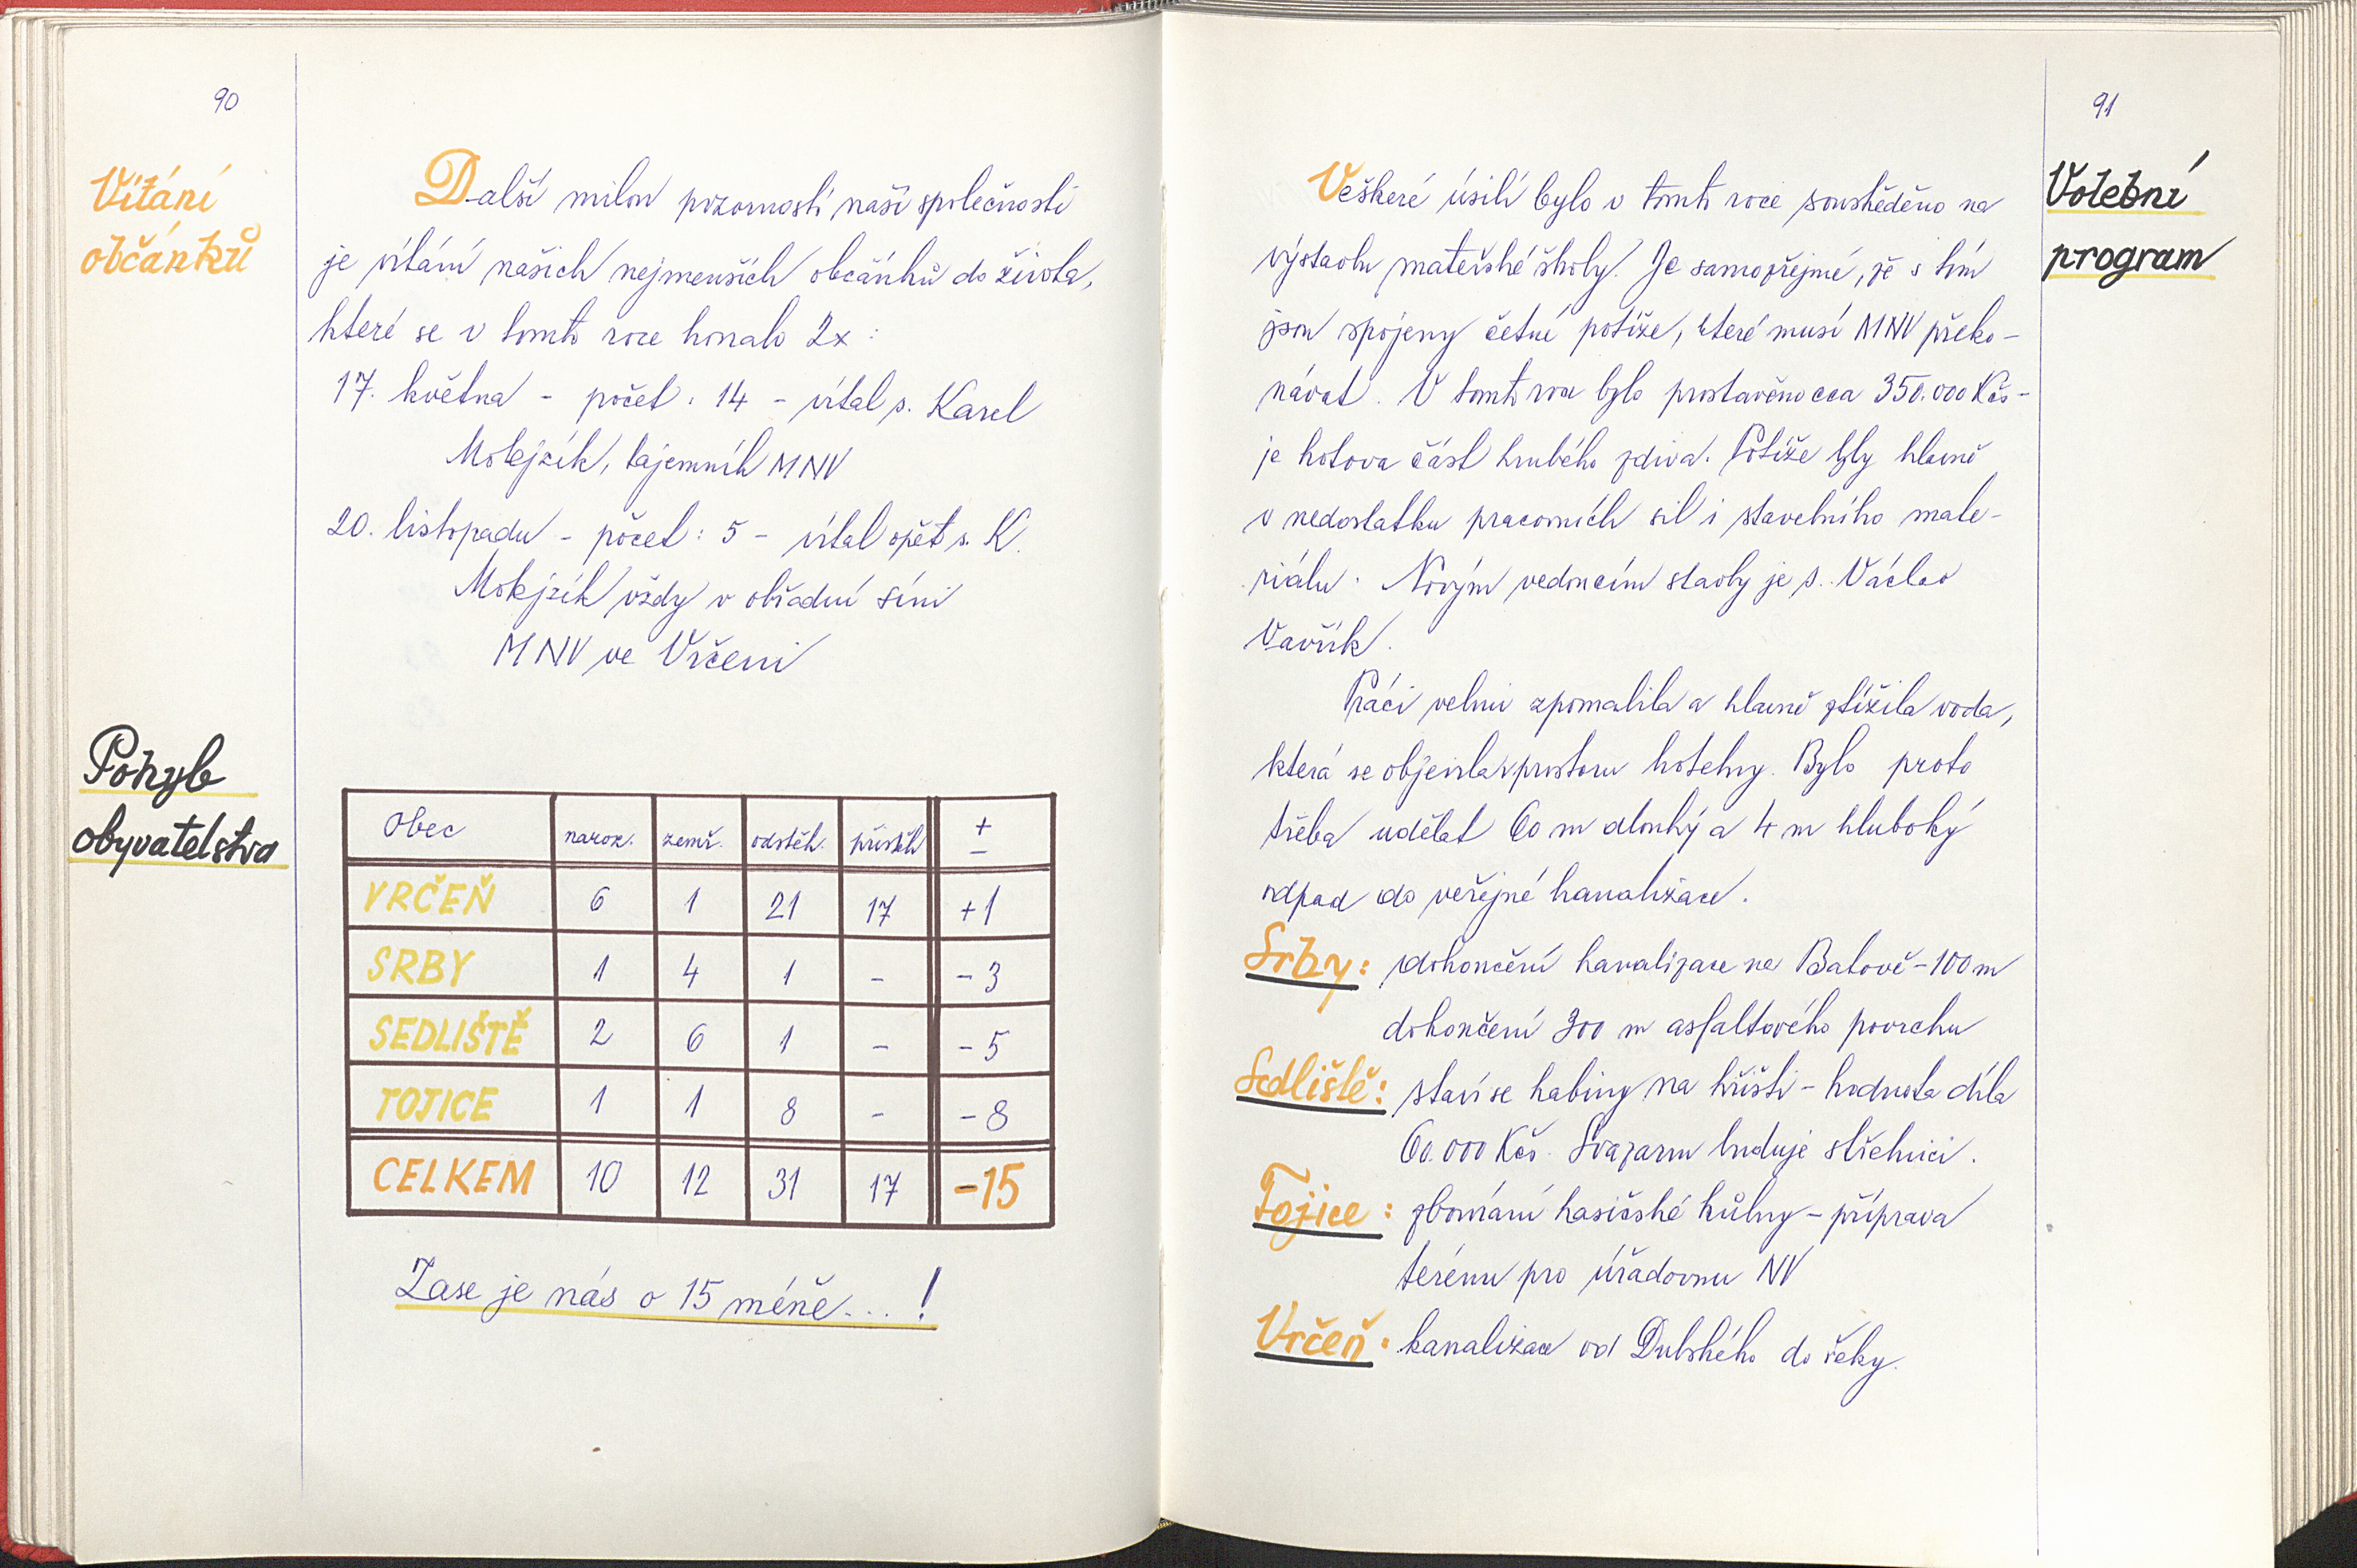 90
Vítání
občánků
Další milou pozorností naší společnosti
je vítání našich nejmenších občánků do života,
které se v tomto roce konalo 2x :
17. května - počet : 14 - vítal s. Karel
Mokjzík, tajemník MNV
20. listopadu - počet : 5 - vítal opět s. K.
Mokjzík vždy v obřadní síni
MNV ve Vrčeni
Pohyb
obyvatelstva
Obec naroz. zemř. odstěh. přistěh + -
VRČEŇ 6 1 21 17 +1
SRBY 1 4 1 - -3
SEDLIŠTĚ 2 6 1 - -5
TOJICE 1 1 8 - -8
CELKEM 10 12 31 17 -15
Zase je nás o 15 méně... !
91
Volební
program
Veškeré úsilí bylo v tomto roce soustředěno na
výstavbu mateřské školy. Je samozřejmé, že s tím
jsou spojeny četné potíže, které musí MNV překo-
návat. V tomto roce bylo prostavěno cca 350.000 Kčs -
je hotova část hrubého zdiva. Potíže byly hlavně
v nedostatku pracovních sil i stavebního mate-
riálu. Novým vedoucím stavby je s. Václav
Vavřík.
Práci velmi zpomalila a hlavně ztížila voda,
která se objevila v prostoru kotelny. Bylo proto
třeba udělat 60 m dlouhý a 4 m hluboký
odpad do veřejné kanalizace.
Srby: dokončení kanalizace na Batově - 100 m
dokončení 300 m asfaltového povrchu
Sedliště: staví se kabiny na hřišti - hodnota díla
60.000 Kčs. Svazarm buduje střelnici.
Tojice: zbourání hasičské kůlny - příprava
terénu pro úřadovnu NV
Vrčeň: kanalizace od Dubského do řeky.